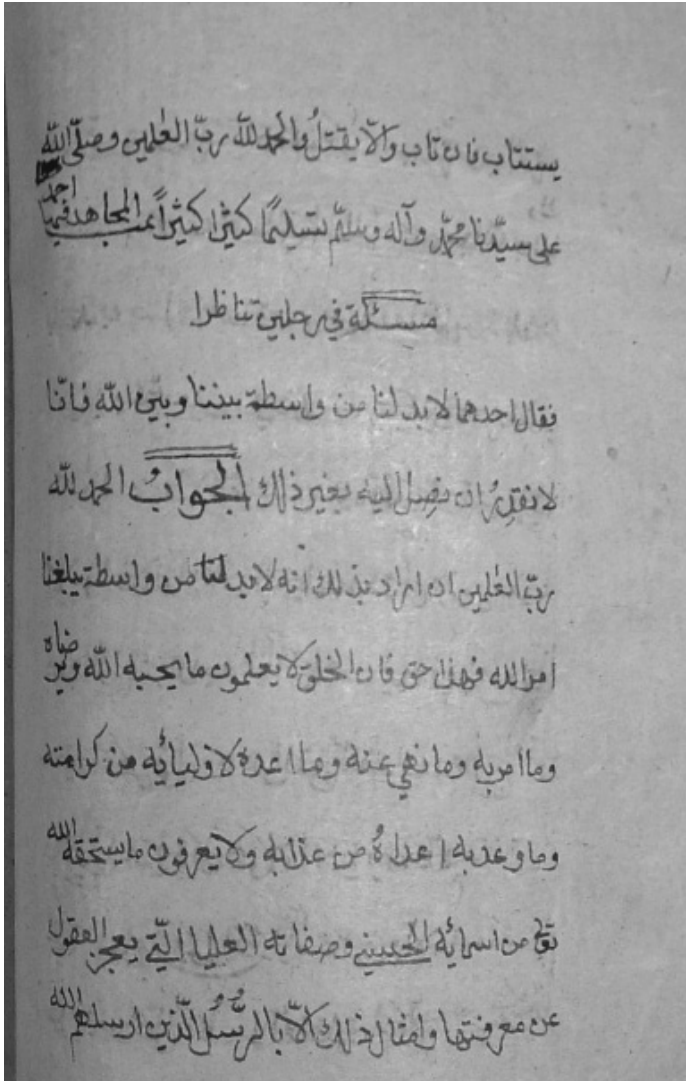 يستتاب فان تاب والّا يقتلُ والحمد للّه ربّ العٰلمين وصلّى اللّه
على سيّدنا محمّد وآله وسلّم تسليمًا كثيرًا كثيراً
مسئلة في رجلين تناظرا
فقال احدهما لا بد لنا من واسطة بيننا وبين اللّه فانّا
لا نقدرُ ان نصِل اليه بغير ذلك الجوابُ الحمد للّه
ربّ العٰلمين ان اراد بذلك انه لا بد لنا من واسطة يبلغنا
امر الله فهذا حق فان الخلق لا يعلمون ما يحبه اللّه ويرضاه
وما امر به وما نهي عنه وما اعده لاوليائه من كرامته
وما وعد به اعداهُ من عذابه ولا يعرفون ما يستحقه اللّه
تعا من اسمائه الحسنى وصفاته العليا الّتي يعجز العقول
عن معرفتها وامثال ذلك الّا بالرّسُل الّذين ارسلهم اللّه